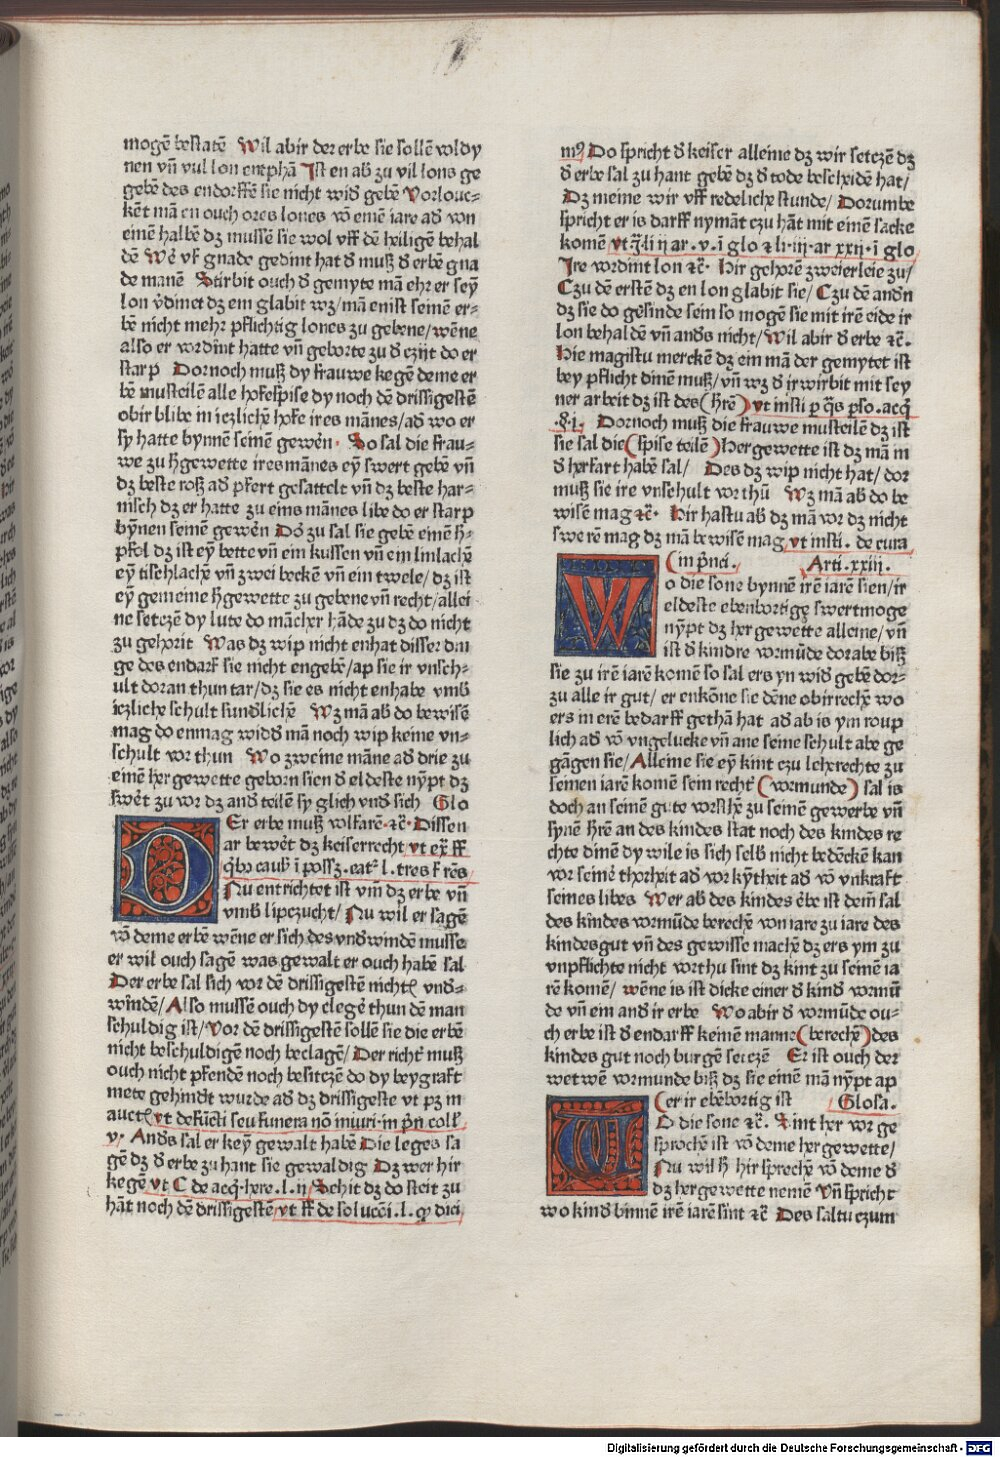 mogē bestatē Wil abir der erbe sie sollē voldy
nen vñ vul lon entphā Ist en ab̄ zu vil lons ge
gebē des endorffē sie nicht wid̄ gebē Vorlouc⸗
kēt mā en ouch ores lones vō emē iare ad̄ von
einē halbē dz mussē sie wol vff dē heiligē behal
dē Wē vf gnade gedint hat d̄ muß d̄ erbē gna
de manē Stirbit ouch d̄ gemyte mā ehr er sey̅
lon v̄dinet dz em glabit wz/ mā enist seinē er⸗
bē nicht mehr pflichtig lones zu gebene/ wēne
also er vordīnt hatte vñ geborte zu d̄ czijt do er
starp Dornoch muß dy frauwe kegē deme er
bē musteilē alle hofespise dy noch dē drissigestē
obir blibe in iczlichē hofe ires mānes/ ad̄ wo er
sy hatte bynnē seinē gewēn. So sal die frau⸗
we zu h̄gewette ires mānes ey̅ swert gebē vñ
dz beste roß ad̄ pfert gesattelt vñ dz beste har⸗
nisch dz er hatte zu eins mānes libe do er starp
by̅nen seinem gewēn Dōzu sal sie gebē einē h̄⸗
pfol dz ist ey̅ bette vñ ein kussen vñ em linlachē
ey̅ tischlachē vñ zwei beckē vñ ein twele/ dz ist
ey̅ gemeine h̄gewette zu gebene vñ recht/ allei
ne setczē dy lute do mācher hāde zu dz do nicht
zu gehorit Was dz wip nicht enhat disser din
ge des endarf sie nicht engebē/ ap sie ir vnsch⸗
ult doran thun tar/ dz sie es nicht enhabe vmb
iczliche schult sundlichē Wz mā ab̄ do bewisē
mag do enmag wid̄s mā noch wip keine vn⸗
schult vor thun Wo zweine māne ad̄ drie zu
einē her gewette geborn sien d̄ eldeste ny̅pt dz
swēt zu vor dz and̄ teilē sy glich vnd̄ sich Glo
Er erbe muß volfarē. ⁊c̄. Dissen
ar bewēt dz keiserrecht vt ex̄ ff
Nu entrichtet ist vm dz erbe vñ
vmb lipczucht/ Nu wil er sagē
vō deme erbē wēne er sich des vnd̄windē musse
er wil ouch sagē was gewalt er ouch habē sal
Der erbe sal sich vor dē drissigestē nicht vnd̄⸗
wīndē/ Also mussē ouch dy clegē thun dē man
schuldig ist/ Vor dē drissigestē sollē sie die erbē
nicht beschuldigē noch beclagē/ Der richt̄ muß
ouch nicht pfendē noch besitczē do dy beygraft
mete gehindt wurde ad̄ dz drissigeste vt pz in
auct vt defūcti seu funera nō iniuri. in p̄n coll'
v. And̄s sal er key̅ gewalt habē Die leges sa
gē dz d̄ erbe zu hant sie gewaldig Dz wer hir
kegē vt C de acq̄. here. l. ij Schit dz do steit zu
hāt noch dē drissigestē/ vt ff de solucci. l. q dici
Do spricht d̄ keiser alleine dz wir setczē dz
d̄ erbe sal zu hant gebē dz d̄ tode bescheidē hat/
Dz meine wir vff redeliche stunde/ Dorumbe
spricht er is darff nymāt czu hāt mit einē sacke
komē vt q̄ li ij ar. v. ī glo ⁊ li. iij. ar xxij. ī glo
Ire vordint lon ⁊c̄. Hir gehorē zweierleie zu/
Czu dē erstē dz en lon glabit sie/ Czu dē andn
dz sie do gēsinde sein so mogē sie mit irē eide ir
lon behaldē vñ and̄s nicht/ Wil abir d̄ erbe ⁊c̄.
Hie magistu merckē dz ein mā der gemytet ist
bey pflicht dinē muß/ vñ wz d̄ irwirbit mit sey
ner arbeit dz ist des (h̄rē) vt insti p q̄s pso. acq̄
.§. j. Dornoch muß die frauwe musteilē dz ist
sie sal die (spise teilē) Hergewette ist dz mā in
d̄ herfart habē sal/ Des dz wip nicht hat/ dor
muß sie ire vnschult vor thū Wz mā ab̄ do be
wisē mag ⁊c̄. Hir hastu ab̄ dz mā vor dz nicht
swerē mag dz mā bewisē mag vt insti. de cura
(in p̄nci. Arti. xxiij.
o die sone bynnē irē iarē sien/ ir
eldeste ebenbortige swertmoge
ny̅pt dz her gewette alleine/ vñ
ist d̄ kindre vormūde dorabe biß
sie zu irē iarē komē so sal ers yn wid̄ gebē dor⸗
zu alle ir gut/ er enkōne sie dēne obirrechē wo
ers in erē bedarff gethā hat ad̄ ab is ym roup
lich ad̄ vō vngelucke vñ ane seine schult abe ge
gāgen sie/ Alleine sie ey̅ kint czu lehērechte zu
seinen iarē komē sein recht̄ (vormunde) sal is
doch an seinē gute vorsth̄ē zu seinē gewerbe vñ
synē h̄rē an des kindes stat noch des kindes re
chte dinē dy wile is sich selb̄ nicht bedēckē kan
vor seinē thorheit ad̄ vor ky̅theit ad̄ vō vnkraft
seines libes Wer ab̄ des kindes ēbe ist dem̄ sal
des kīndes vormūde berechē von iare zu iare des
kindesgut vñ des gewisse machē dz ers ym zu
vnpflichte nicht vorthu sint dz kint zu seinē ia
rē komē/ wēne is ist dicke einer d̄ kind̄ vormū
de vñ em and̄ ir erbe Wo abir d̄ vormūde ou⸗
ch erbe ist d̄ endarff keinē manne (berechē) des
kindes gut noch burgē setczē Er ist ouch der
wetwē vormunde biß dz sie einē mā ny̅pt ap
(er ir ebēbortig ist Glosa.
O die sone ⁊c̄. Sint her vor ge
sprochē ist vō deme her gewette/
Nu wil h̄ hir sprechē vō deme d̄
dz her gewette nemē Vñ spricht
wo kind̄ binnē irē iarē sint ⁊c̄ Des saltu czum
Digitalisierung gefördert durch die Deutsche Forschungsgemeinschaft - DFG